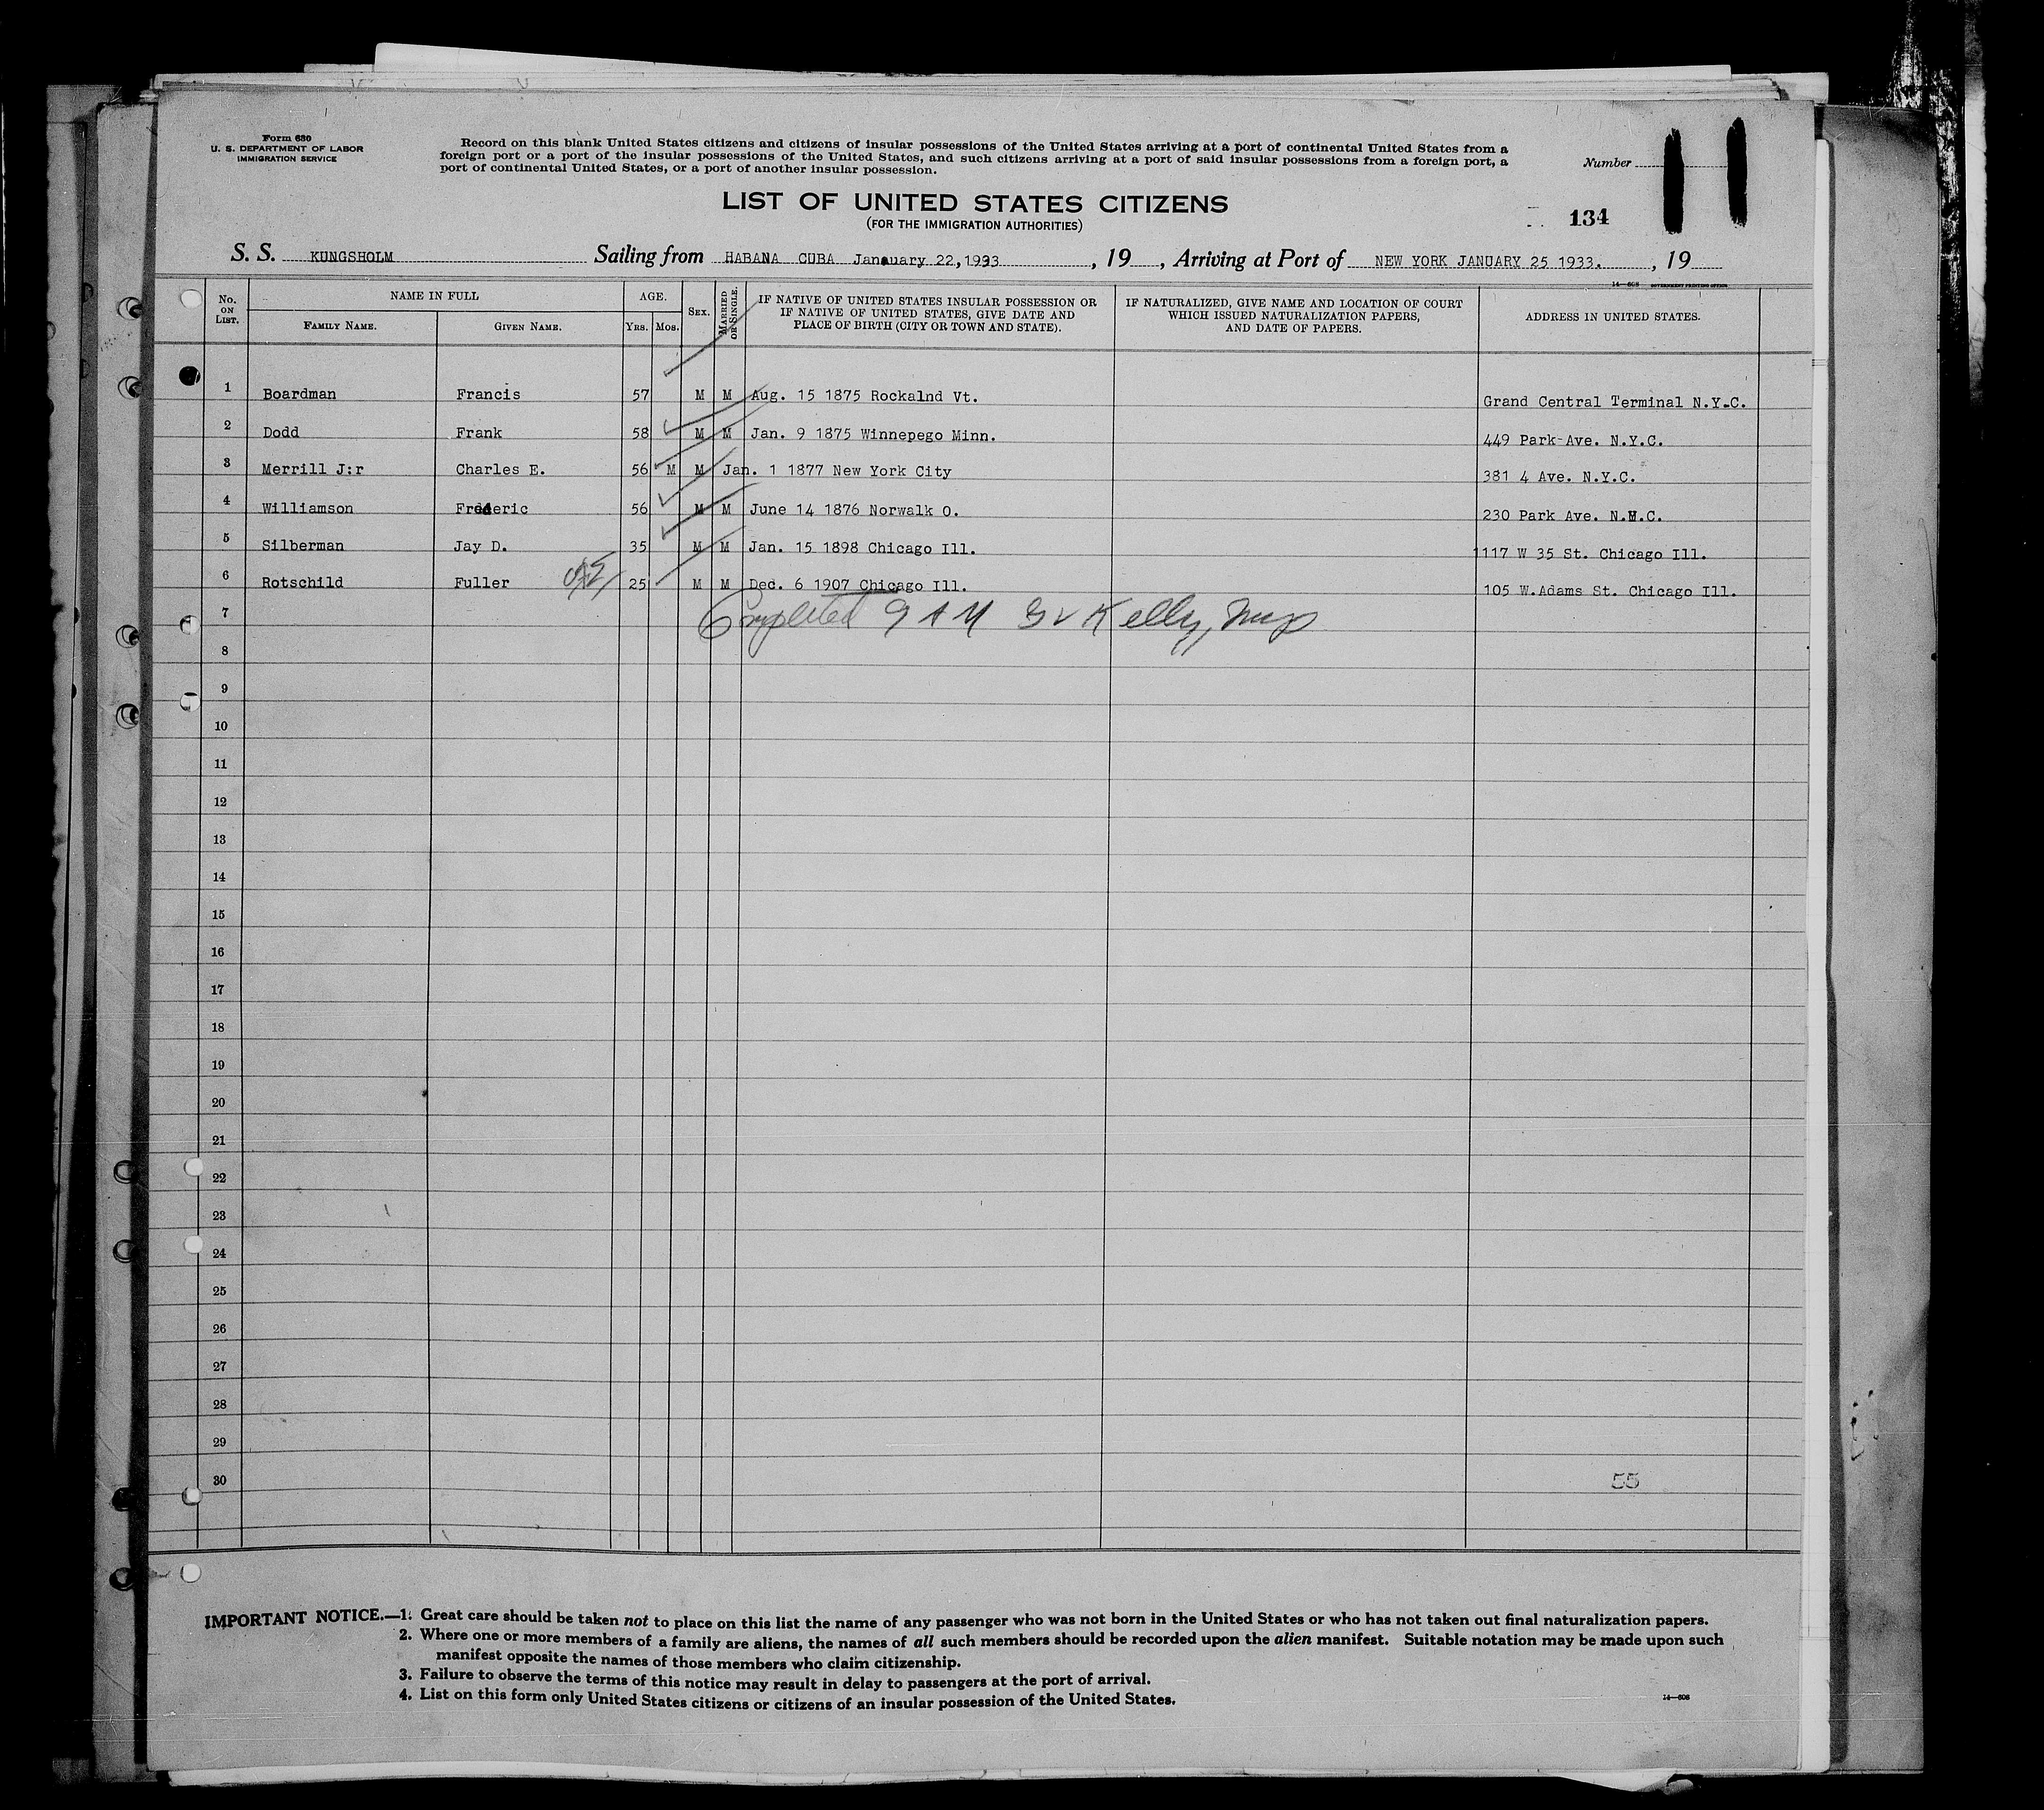 Form 630
U. S. DEPARTMENT OF LABOR
IMMIGRATION SERVICE
Record on this blank United States citizens and citizens of insular possessions of the United States arriving at a port of continental United States from a
foreign port or a port of the insular possessions of the United States, and such citizens arriving at a port of said insular possessions from a foreign port, a
port of continental United States, or a port of another insular possession.
Number
LIST OF UNITED STATES CITIZENS
(FOR THE IMMIGRATION AUTHORITIES)
134
S. S. KUNGSHOLM Sailing from HABANA CUBA January 22,1933, 19 , Arriving at Port of NEW YORK JANUARY 25 1933. , 19
14—608 GOVERNMENT PRINTING OFFICE
No. ON LIST. NAME IN FULL AGE. SEX. MARRIED OR SINGLE. IF NATIVE OF UNITED STATES INSULAR POSSESSION OR IF NATIVE OF UNITED STATES, GIVE DATE AND PLACE OF BIRTH (CITY OR TOWN AND STATE). IF NATURALIZED, GIVE NAME AND LOCATION OF COURT WHICH ISSUED NATURALIZATION PAPERS, AND DATE OF PAPERS. ADDRESS IN UNITED STATES.
FAMILY NAME. GIVEN NAME. YRS. MOS.
1 Boardman Francis 57 M M Aug. 15 1875 Rockalnd Vt. Grand Central Terminal N.Y.C.
2 Dodd Frank 58 M M Jan. 9 1875 Winnepego Minn. 449 Park Ave. N.Y.C.
3 Merrill J:r Charles E. 56 M M Jan. 1 1877 New York City 381 4 Ave. N.Y.C.
4 Williamson Frederic 56 M M June 14 1876 Norwalk O. 230 Park Ave. N.Y.C.
5 Silberman Jay D. 35 M M Jan. 15 1898 Chicago Ill. 1117 W 35 St. Chicago Ill.
6 Rotschild Fuller 25 M M Dec. 6 1907 Chicago Ill. 105 W.Adams St. Chicago Ill.
7 Completed 9 A M G V Kelly, Insp
8
9
10
11
12
13
14
15
16
17
18
19
20
21
22
23
24
25
26
27
28
29
30 55
IMPORTANT NOTICE.—1. Great care should be taken not to place on this list the name of any passenger who was not born in the United States or who has not taken out final naturalization papers.
2. Where one or more members of a family are aliens, the names of all such members should be recorded upon the alien manifest. Suitable notation may be made upon such
manifest opposite the names of those members who claim citizenship.
3. Failure to observe the terms of this notice may result in delay to passengers at the port of arrival.
4. List on this form only United States citizens or citizens of an insular possession of the United States.
14—608